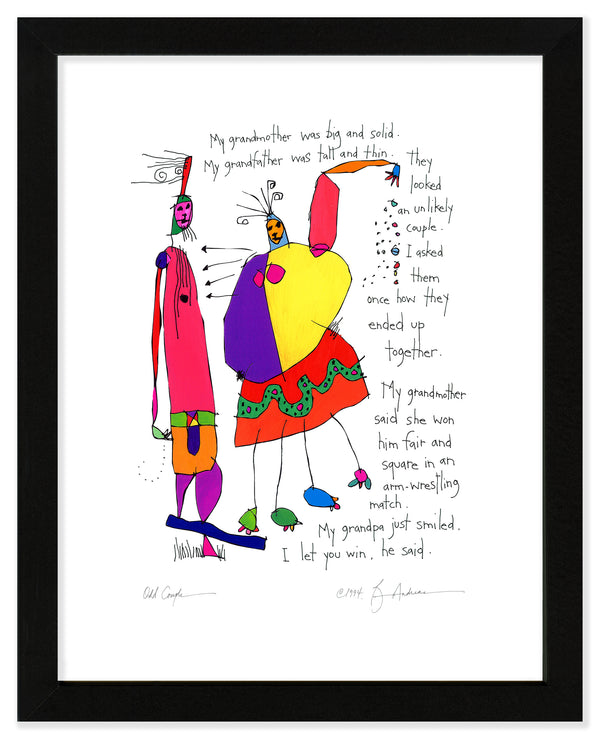 My grandmother was big and solid.
My grandfather was tall and thin. They
looked
an unlikely
couple.
I asked
them
once how they
ended up
together.
My grandmother
said she won
him fair and
square in an
arm-wrestling
match.
My grandpa just smiled.
I let you win, he said.
Odd Couple
©1994. Andreas